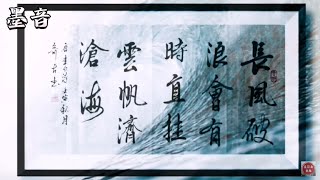 墨音
長風破
浪會有
時直挂
雲帆濟
滄海